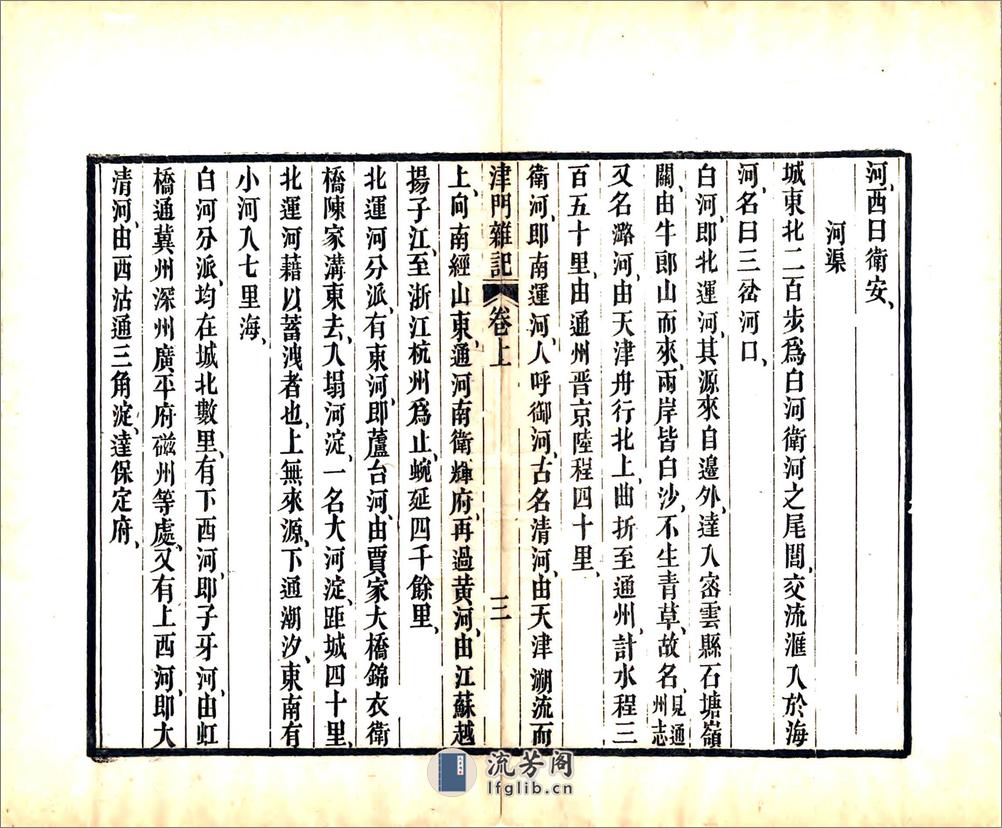 河、西曰衛安、
河渠
城東北二百步爲白河衛河之尾閭、交流滙入於海
河、名曰三岔河口、
白河、即北運河、其源來自邊外、達入密雲縣石塘嶺
關、由牛郎山而來、兩岸皆白沙、不生青草、故名、見通州志
又名潞河、由天津舟行北上、曲折至通州、計水程三
百五十里、由通州晋京陸程四十里、
衛河、即南運河、人呼御河、古名清河、由天津溯流而
津門雜記 卷上 三
上、向南經山東、通河南衛輝府、再過黄河、由江蘇越
揚子江、至浙江杭州爲止、蜿延四千餘里、
北運河分派、有東河、即蘆台河、由賈家大橋錦衣衛
橋陳家溝東去、入塌河淀、一名大河淀、距城四十里、
北運河藉以蓄洩者也、上無來源、下通潮汐、東南有
小河入七里海、
白河分派、均在城北數里、有下西河、即子牙河、由虹
橋通冀州深州廣平府磁州等處、又有上西河、即大
清河、由西沽通三角淀、達保定府、
流芳阁
lfglib.cn